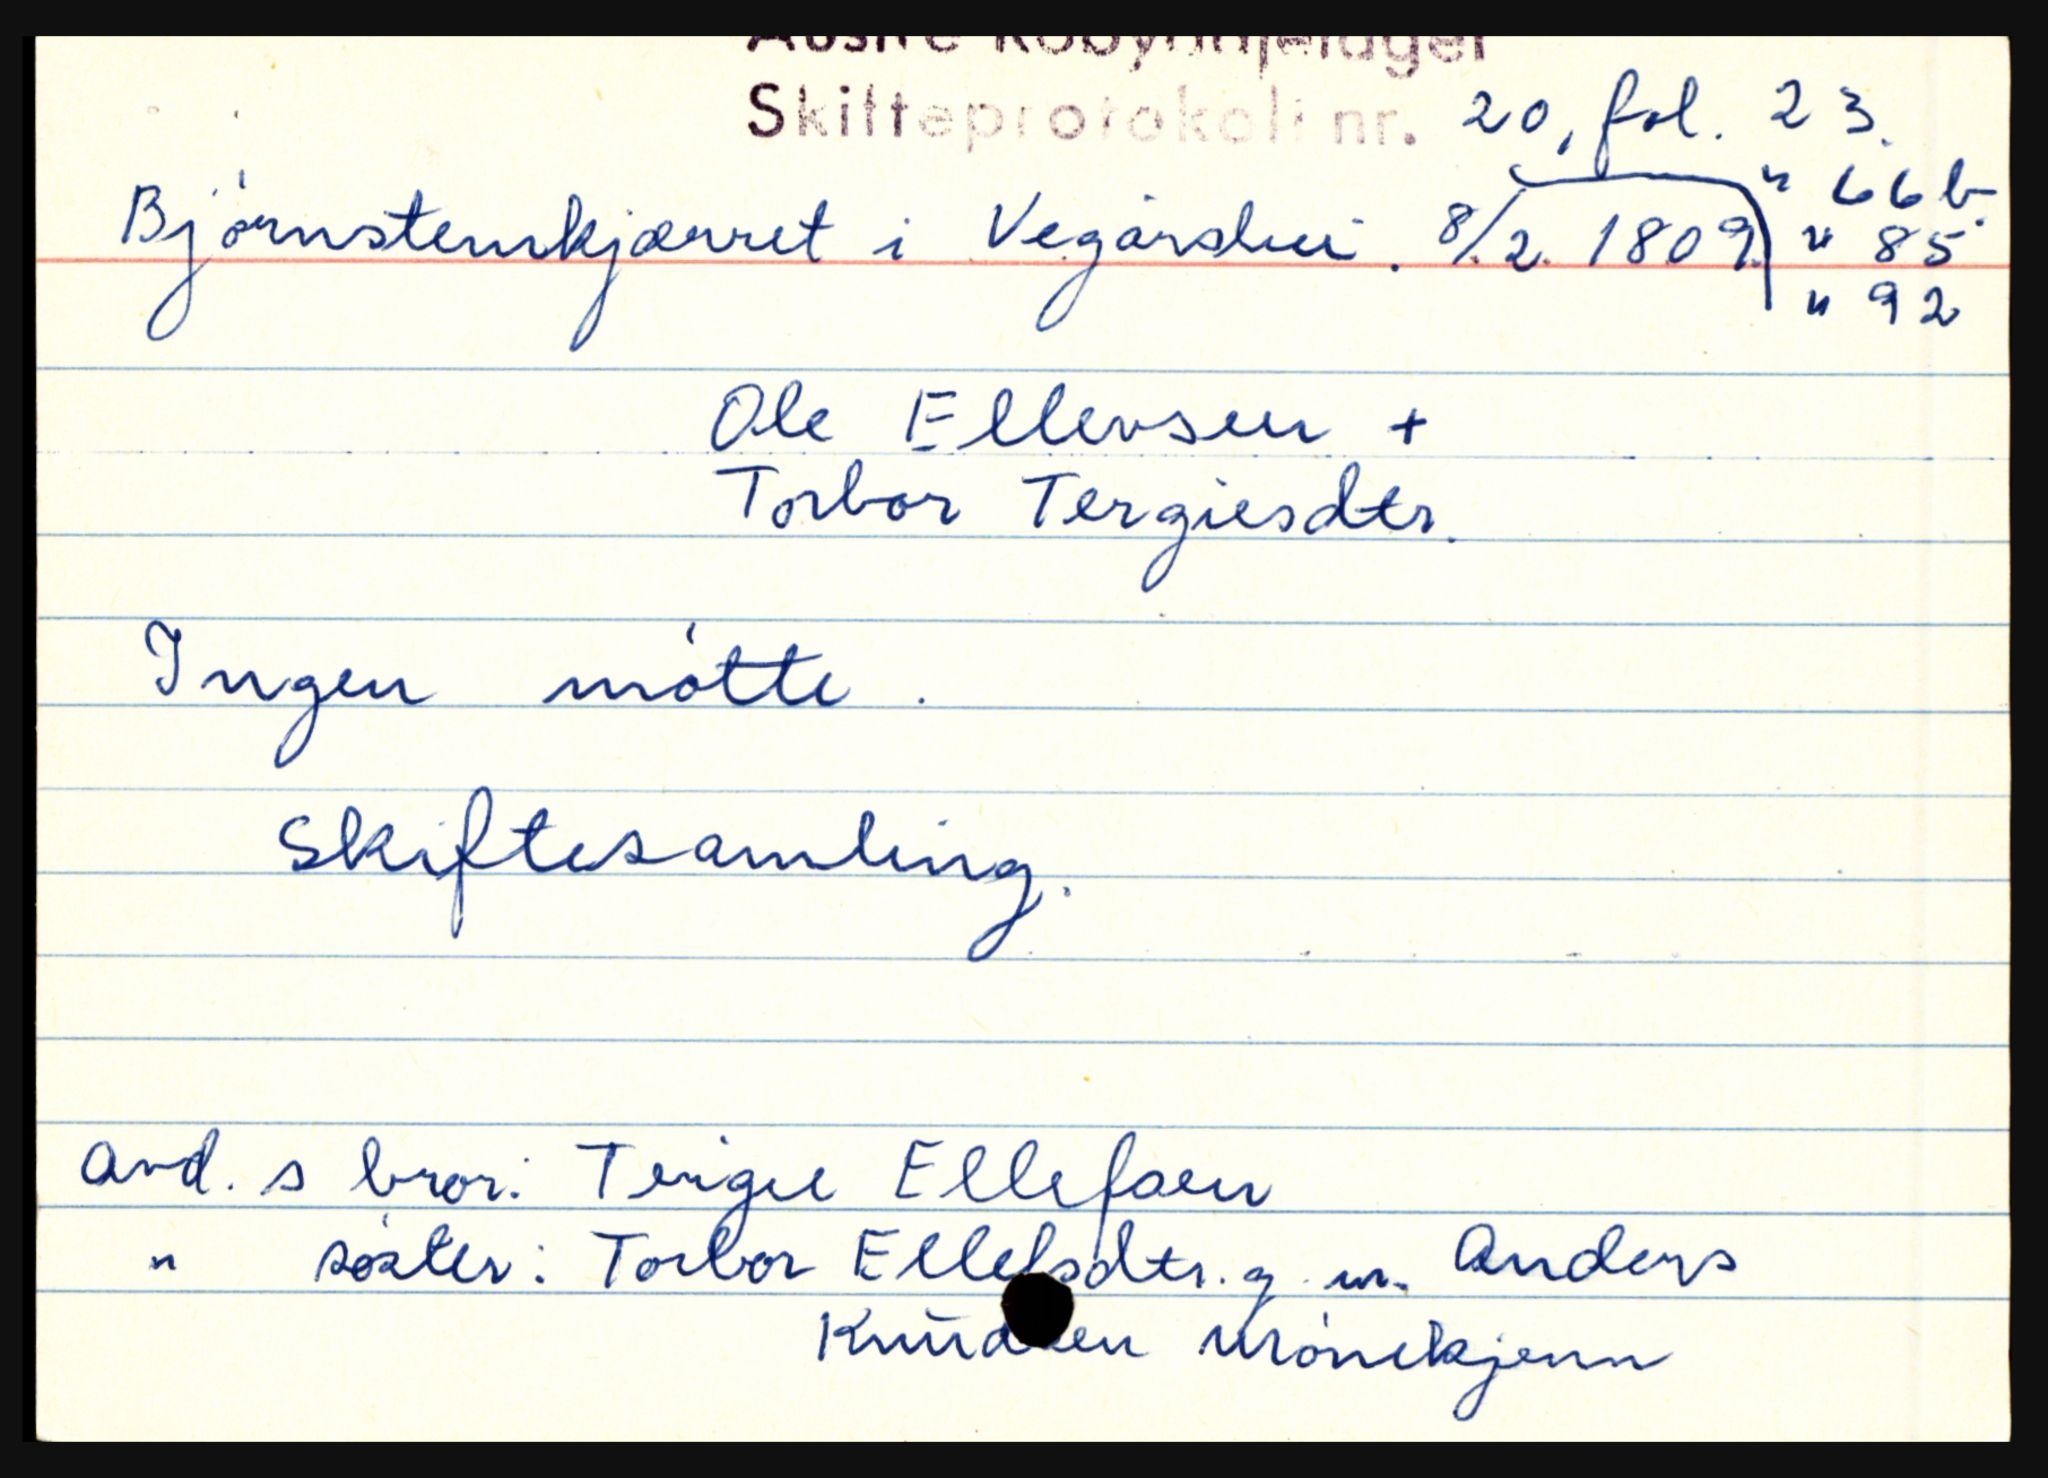 Skifteprotokoll nr. 20, fol. 23.
" 66b.
Bjørnstenskjærret i Vegårshei. 8/2. 1809. " 85
" 92
Ole Ellevsen +
Torbor Tergiesdtr.
Ingen møtte.
Skiftesamling.
Avd. s bror: Tergie Ellefsen
" søster: Torbor Ellefsdtr. g. m. Anders
Knudsen Mönekjenn